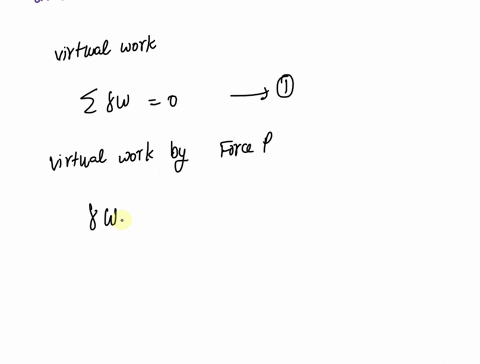 virtual work
∑ δW = 0 ⟶ ①
virtual work by Force P
δW.